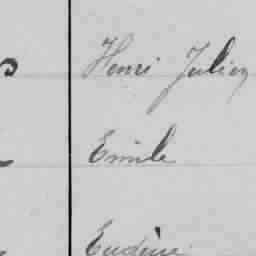 Henri Julien
Emile
Eugène